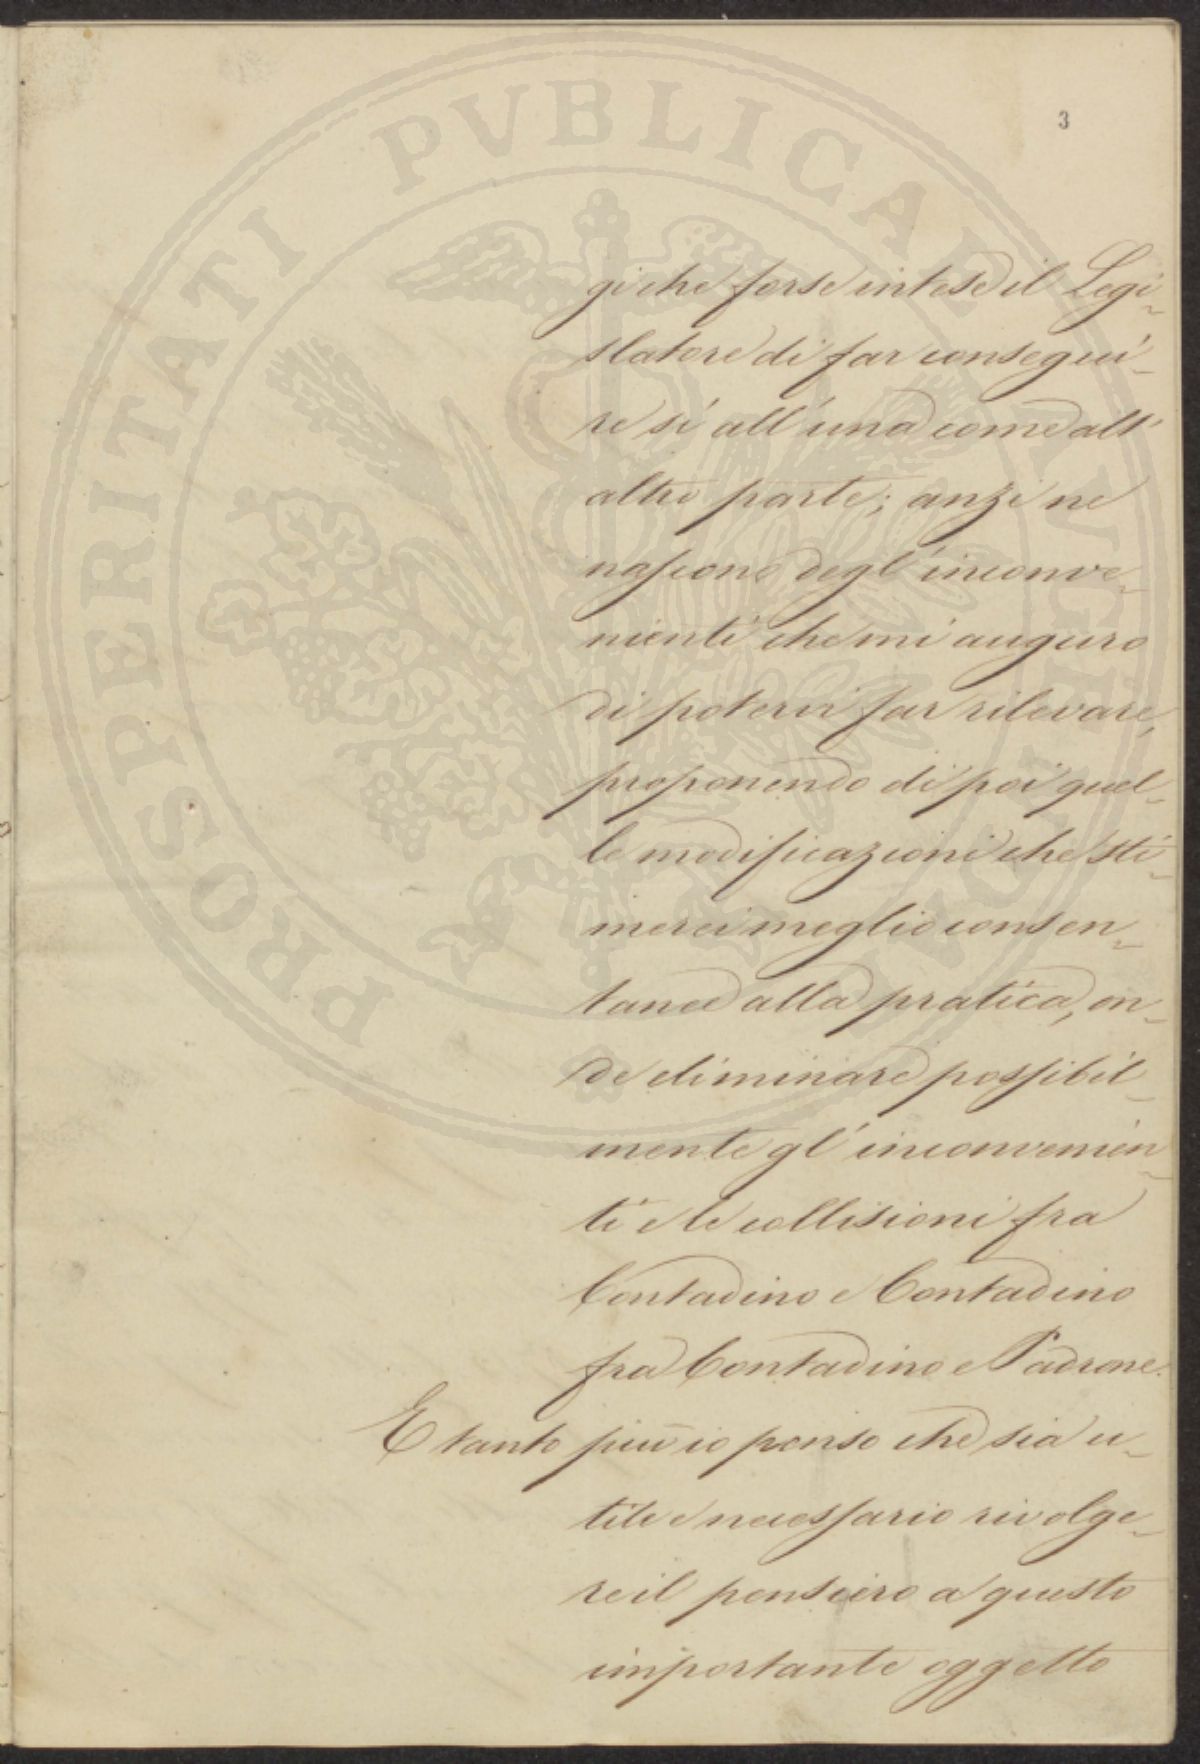 3
gi che forse intese il Legi-
slatore di far consegui-
re sì all'una come all'
altra parte; anzi ne
nascono degl'inconve-
nienti che mi auguro
di potervi far rilevare,
proponendo di poi quel-
le modificazioni che sti-
merei meglio consen-
tanee alla pratica, on-
de eliminare possibil-
mente gl'inconvenien-
ti e le collisioni fra
Contadino e Contadino
fra Contadino e Padrone.
E tanto più io penso che sia u-
tile e necessario rivolge-
re il pensiero a questo
importante oggetto
PROSPERITATI PVBLICAE AVGENDAE